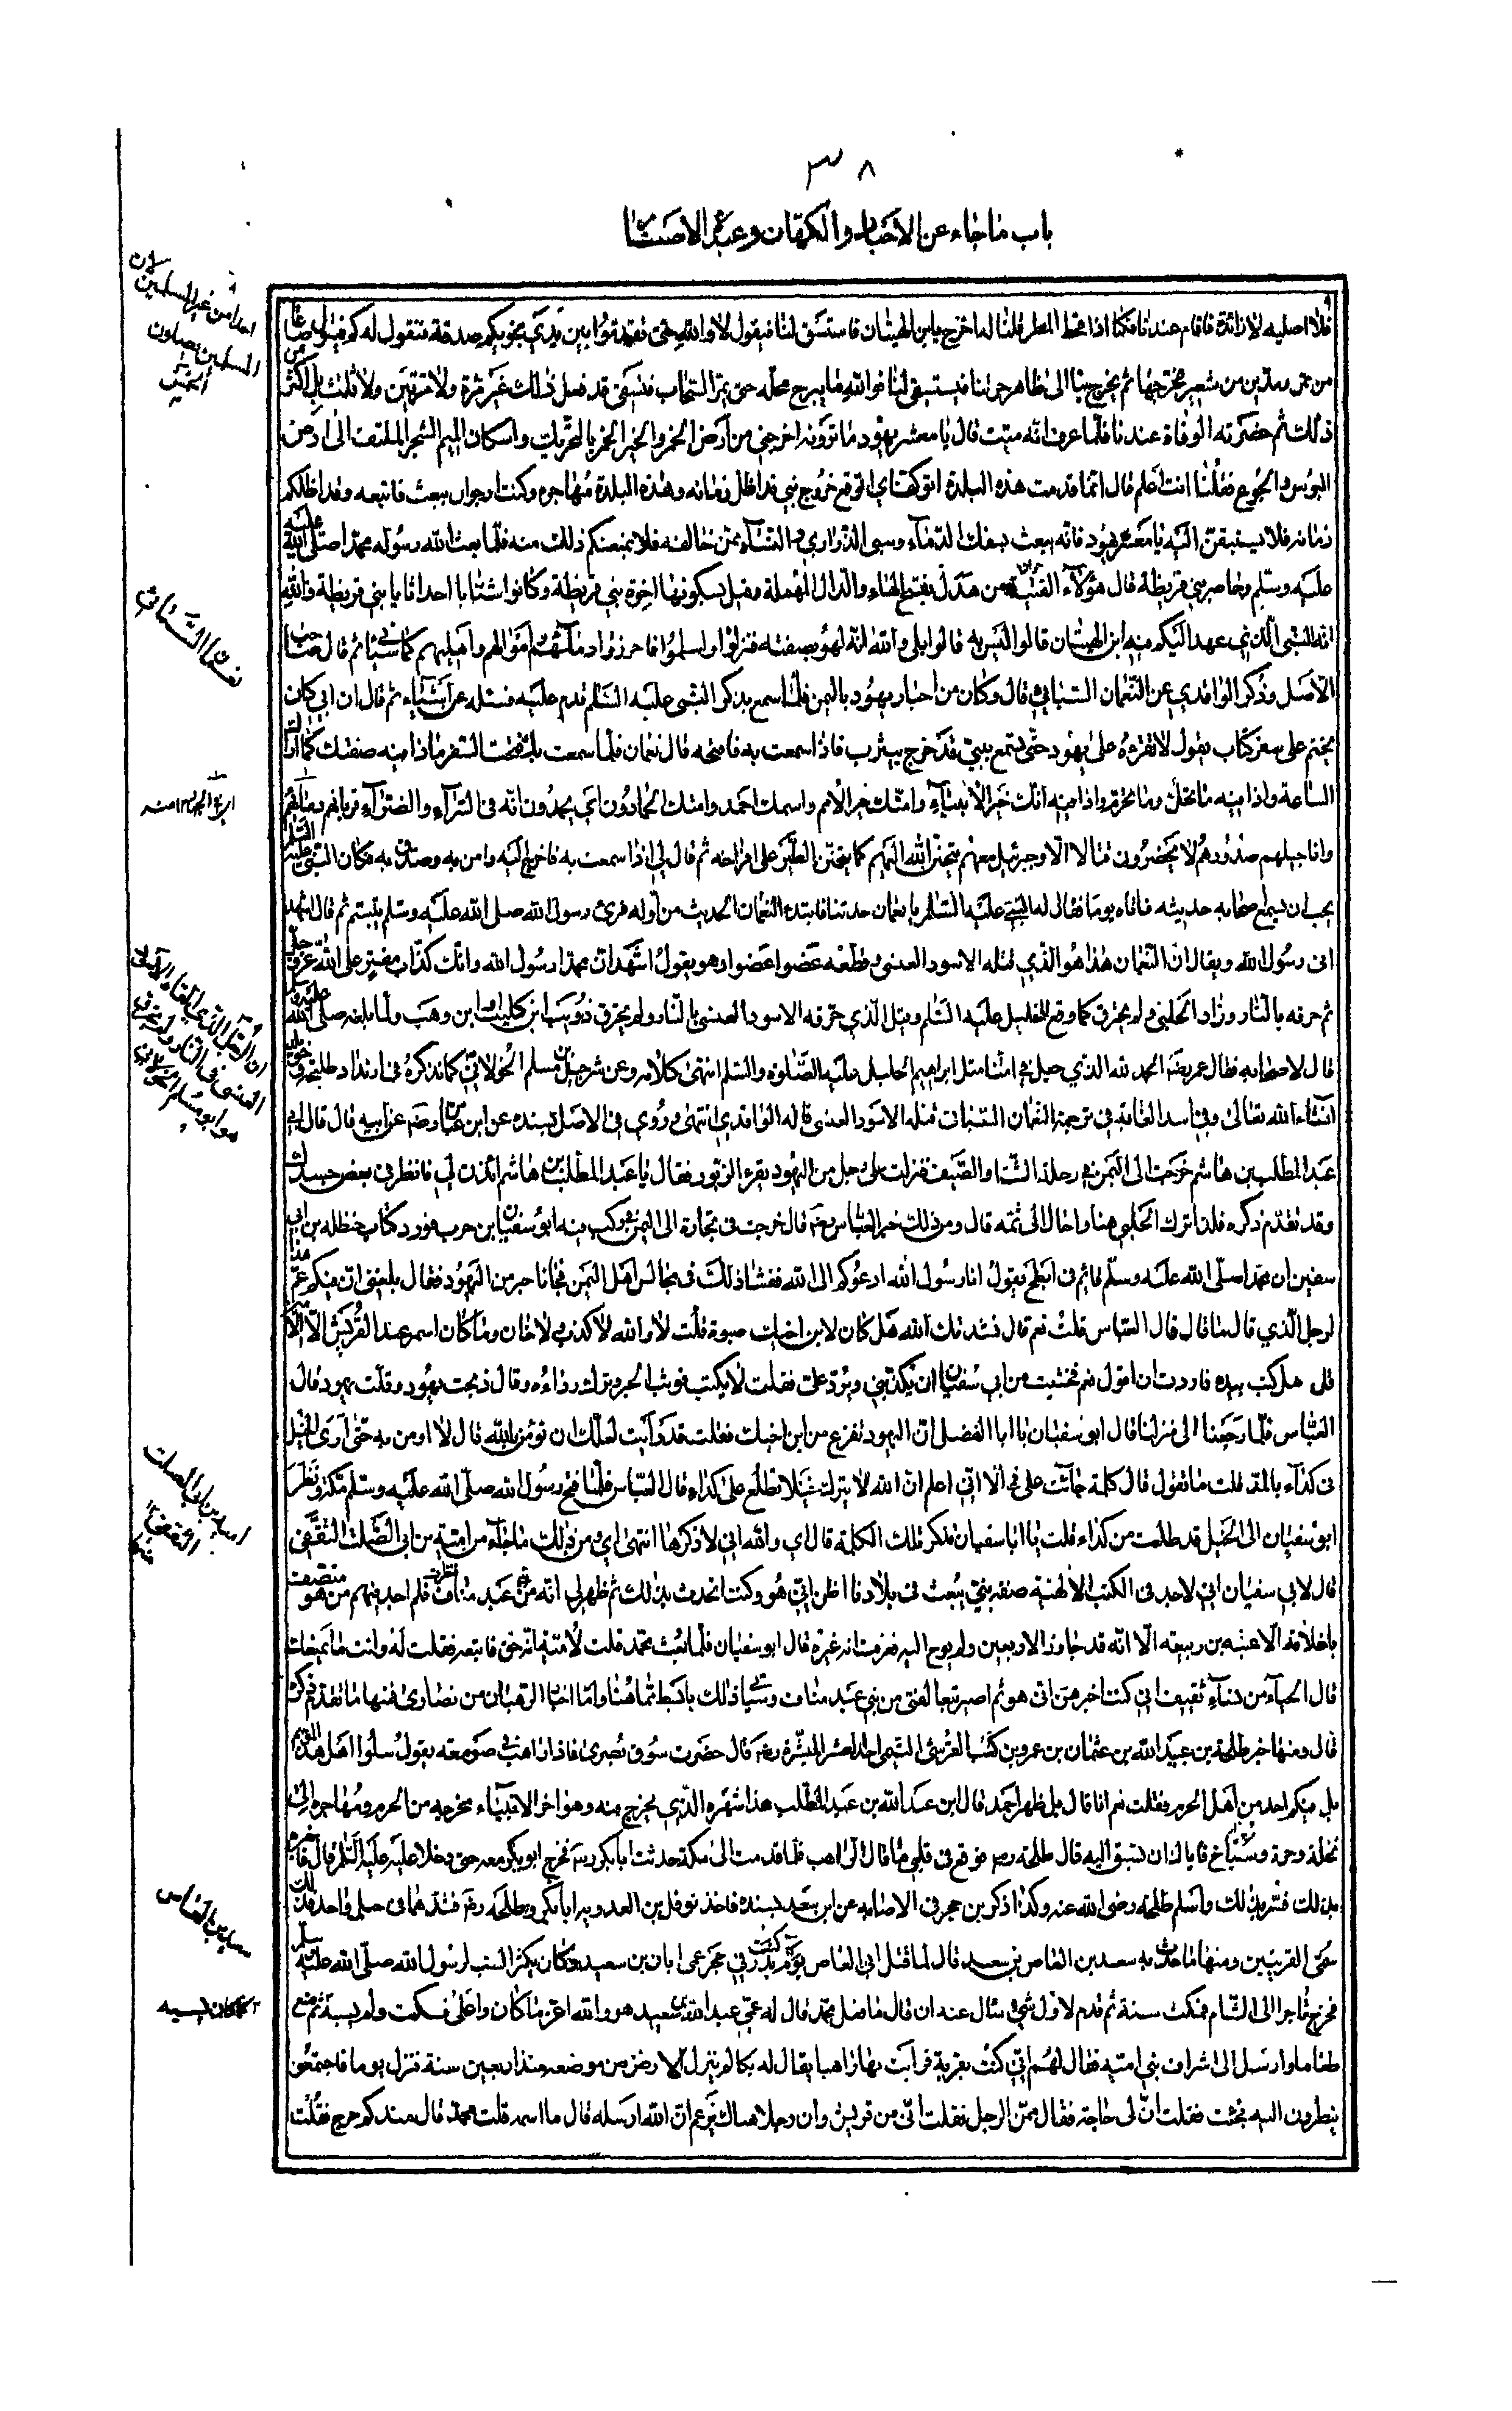 ٣٨
باب ما جاء عن الاحبار والكهان وعن الاصنام
فلا اصليه لا زائدة فاقام عندنا فكنا اذا قحط المطر قلنا له اخرج يا ابن الهيبان فاستسق لنا فيقول لا والله حتى تقدموا بين يدي نجويكم صدقة فنقول له كم فيقول صاعا
من تمر ومدين من شعير فنخرجها ثم يخرج بنا الى ظاهر حرتنا فيستسقي لنا فوالله ما يبرح محله حتى يمر السحاب فنسقى قد فعل ذلك غير مرة ولا مرتين ولا ثلث بل اكثر من
ذلك ثم حضرته الوفاة عندنا فلما عرف انه ميت قال يا معشر يهود ما ترونه اخرجني من ارض الخمر والخبز الخمر بالتحريك واسكان الميم الشجر الملتف الى ارض
البؤس والجوع فقلنا انت اعلم قال انما قدمت هذه البلدة اتوكف اي اتوقع خروج نبي قد اظل زمانه وهذه البلدة مهاجره وكنت ارجو ان يبعث فاتبعه وقد اظلكم
زمانه فلا يسبقن اليه يا معشر يهود فانه يبعث بسفك الدماء وسبي الذراري والنساء ممن خالفه فلا يمنعكم ذلك منه فلما بعث الله رسوله محمدا صلى الله
عليه وسلم وحاصر بني قريظة قال هؤلاء الفتية من هدل بفتح الهاء والدال المهملة وقيل بسكونها اخوة بني قريظة وكانوا شبابا احداثا يا بني قريظة والله
انه النبي الذي عهد اليكم فيه ابن الهيبان قالوا ليس به قالوا بلى والله انه لهو بصفته فنزلوا واسلموا فاحرزوا دمائهم واموالهم واهليهم كما سياتي ثم قال صاحب
الاصل وذكر الواقدي عن النعمان السبائي قال وكان من احبار يهود باليمن فلما سمع بذكر النبي عليه السلم قدم عليه فسئله عن اشياء ثم قال ان ابي كان
يختم على سفر كتاب يقول لا تقرءه على يهود حتى تسمع بنبي قد خرج بيثرب فاذا سمعت به فافتحه قال نعمان فلما سمعت بك فتحت السفر فاذا فيه صفتك كما اراك
الساعة واذا فيه ما تحل وما تحرم واذا فيه انك خير الانبياء وامتك خير الامم واسمك احمد وامتك الحمادون اي يحمدون الله في السراء والضراء قربانهم دماؤهم
واناجيلهم صدورهم لا يحضرون قتالا الا وجبرئيل معهم يتحنن الله اليهم كما يتحنن الطير على افراخه ثم قال لي اذا سمعت به فاخرج اليه وامن به وصدق به فكان النبي عليه السلم
يحب ان يسمع اصحابه حديثه فاتاه يوما فقال له النبي عليه السلم يا نعمان حدثنا فابتدء النعمان الحديث من اوله فرئ رسول الله صلى الله عليه وسلم يتبسم ثم قال اشهد
اني رسول الله ويقال ان النعمان هذا هو الذي قتله الاسود العنسي وقطعه عضوا عضوا وهو يقول اشهد ان محمدا رسول الله وانك كذاب مفتر على الله عز وجل
ثم حرقه بالنار وزاد الحلبي ولم يحترق كما وقع للخليل عليه السلم وقيل الذي حرقه الاسود العنسي بالنار ولم يحترق ذؤيب ابن كليب ابن وهب ولما بلغه صلى الله عليه وسلم
قال لاصحابه فقال عمر رضه الحمد لله الذي جعل في امتنا مثل ابراهيم الخليل عليه الصلوة والسلم انتهى كلامه وعن شرحبيل بن مسلم الخولاني كما نذكره في ارتداد طليحة
انشاء الله تعالى وفي اسد الغابة في ترجمة النعمان السبائي قتله الاسود العنسي قاله الواقدي انتهى وروي في الاصل بسنده عن ابن عباس رضه عن ابيه قال قال لي
عبد المطلب بن هاشم خرجت الى اليمن في رحلة الشتا والصيف فنزلت على رجل من اليهود يقرء الزبور فقال يا عبد المطلب بن هاشم ائذن لي فانظر في بعض جسدك
وقد تقدم ذكره فلذا ترك الحلبي هنا واحال الى ثمه قال ومن ذلك خبر العباس رضه قال خرجت في تجارة الى اليمن في ركب فيه ابو سفيان ابن حرب فورد كتاب حنظله بن ابي
سفين ان محمدا صلى الله عليه وسلم قائم في ابطح يقول انا رسول الله ادعوكم الى الله ففشا ذلك في مجالس اهل اليمن فجائنا حبر من اليهود فقال بلغني ان فيكم عم هذا
لرجل الذي قال ما قال قال العباس قلت نعم قال نشدتك الله هل كان لابن اخيك صبوة قلت لا والله لا كذب ولا خان وما كان اسمه عند القريش الا الامين
قل هل كتب بيده فاردت ان اقول نعم فخشيت من ابي سفيان ان يكذبني ويرد علي فقلت لا يكتب فوثب الحبر وترك رداءه وقال ذبحت يهود وقتلت يهود قال
العباس فلما رجعنا الى منزلنا قال ابو سفيان يا ابا الفضل ان اليهود تفزع من ابن اخيك فقلت قد رايت لعلك ان تؤمن بالله قال لا اومن به حتى ارى الخيل
في كداء بالمد قلت ما تقول قال كلمة جائت على فمي الا اني اعلم ان الله لا يترك خيلا تطلع على كداء قال العباس فلما فتح رسول الله صلى الله عليه وسلم مكة ونظر
ابو سفيان الى الخيل قد طلعت من كداء قلت يا ابا سفيان تذكر تلك الكلمة قال اي والله اني لاذكرها انتهى اي ومن ذلك ما جاء من امية بن ابي الصلت الثقفي
قال لابي سفيان اني لاجد في الكتب الالهية صفة نبي يبعث في بلادنا اظن اني هو وكنت اتحدث بذلك ثم ظهر لي انه من بني عبد مناف فنظرت فلم اجد فيهم من هو متصف
باخلاقه الا عتبه بن ربيعه الا انه قد جاوز الاربعين ولم يوح اليه فعرفت انه غيره قال ابو سفيان فلما بعث محمد قلت لامية انه حق فاتبعه فقلت له وانت ما يمنعك
قال الحياء من نساء ثقيف اني كنت اخبرهن اني هو ثم اصير تبعا لفتى من بني عبد مناف وسياتي ذلك بابسط مما هنا واما اخبار الرهبان من نصارى فمنها ما تقدم ذكره
قال ومنها خبر طلحة بن عبيد الله بن عثمان بن عمرو بن كعب القرشي التيمي احد العشر المبشرة رضه قال حضرت سوق بصرى فاذا راهب في صومعته يقول سلوا اهل هذا الموسم
هل فيكم احد من اهل الحرم فقلت نعم انا قال هل ظهر احمد قال ابن عبد الله بن عبد المطلب هذا شهره الذي يخرج فيه وهو اخر الانبياء مخرجه من الحرم ومهاجره الى
نخلة وحرة وسباخ فاياك ان تسبق اليه قال طلحه رضه فوقع في قلبي ما قال الراهب فلما قدمت الى مكة حدثت ابا بكر رضه فخرج ابو بكر معه حتى دخلا عليه عليه السلم قال فاخبره
بذلك فسر بذلك واسلم طلحه رضي الله عنه وكذا ذكر بن حجر في الاصابه عن ابن سعد بسنده فاخذ نوفل بن العدويه ابا بكر وطلحه رضه فشدهما في حبل واحد فلذلك
سمي القرينين ومنها ما حدث به سعيد بن العاص بن سعيد قال لما قتل ابي العاص يوم بدر كنت في حجر عمي ابان بن سعيد وكان يكثر السب لرسول الله صلى الله عليه وسلم
فخرج تاجرا الى الشام فمكث سنة ثم قدم فاول شئ سئال عنه ان قال ما فعل محمد قال له عمي عبد الله بن سعيد هو والله اعز ما كان واعلى فسكت ولم يسبه ثم صنع
طعاما وارسل الى اشراف بني امية فقال لهم اني كنت بقرية فرايت بها راهبا يقال له بكا لم ينزل الى الارض من موضعه منذ اربعين سنة فنزل يوما فاجتمعوا
ينظرون اليه فجئت فقلت ان لي حاجة فقال ممن الرجل فقلت اني من قريش وان رجلا هناك يزعم ان الله ارسله قال ما اسمه قلت محمد قال منذ كم خرج فقلت
احدا من غير المسلمين
المسلمين يصلون
نعمان السبائي
ان الرجل الذي القاه الاسود
العنسي في النار ولم يحترق
هو ابو مسلم الخولاني
امية بن ابي الصلت
الثقفي
سعيد بن العاص
كما كان يسبه